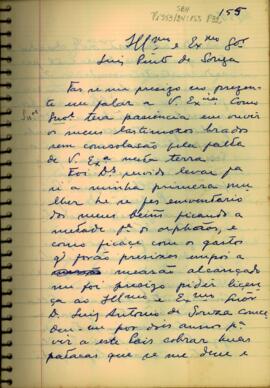 155
SBH
Pi 153/24:153 P32
Illmo e Exmo Snr
Luis Pinto de Souza
Fas se me precizo no prezen-
te me falar a V. Excia Como
Snr. tera paciencia em ouvir
os meus lastimozos brados
sem consolação pela falta
de V. Exa nesta terra
Foi Ds servido levar pa
si a minha primeira mu-
lher he se fes enventario
dos meus beins ficando a
metade pa os orphãos, e
como ficaçe com os gastos
q. forão precizos
meação alcançado
me foi precizo pidir licen-
ça ao Illmo e Exmo Snor
D. Luis Antonio de Souza conce
deu-me por dois annos pa
vir a este Pais cobrar huas
patacas que se me deve e